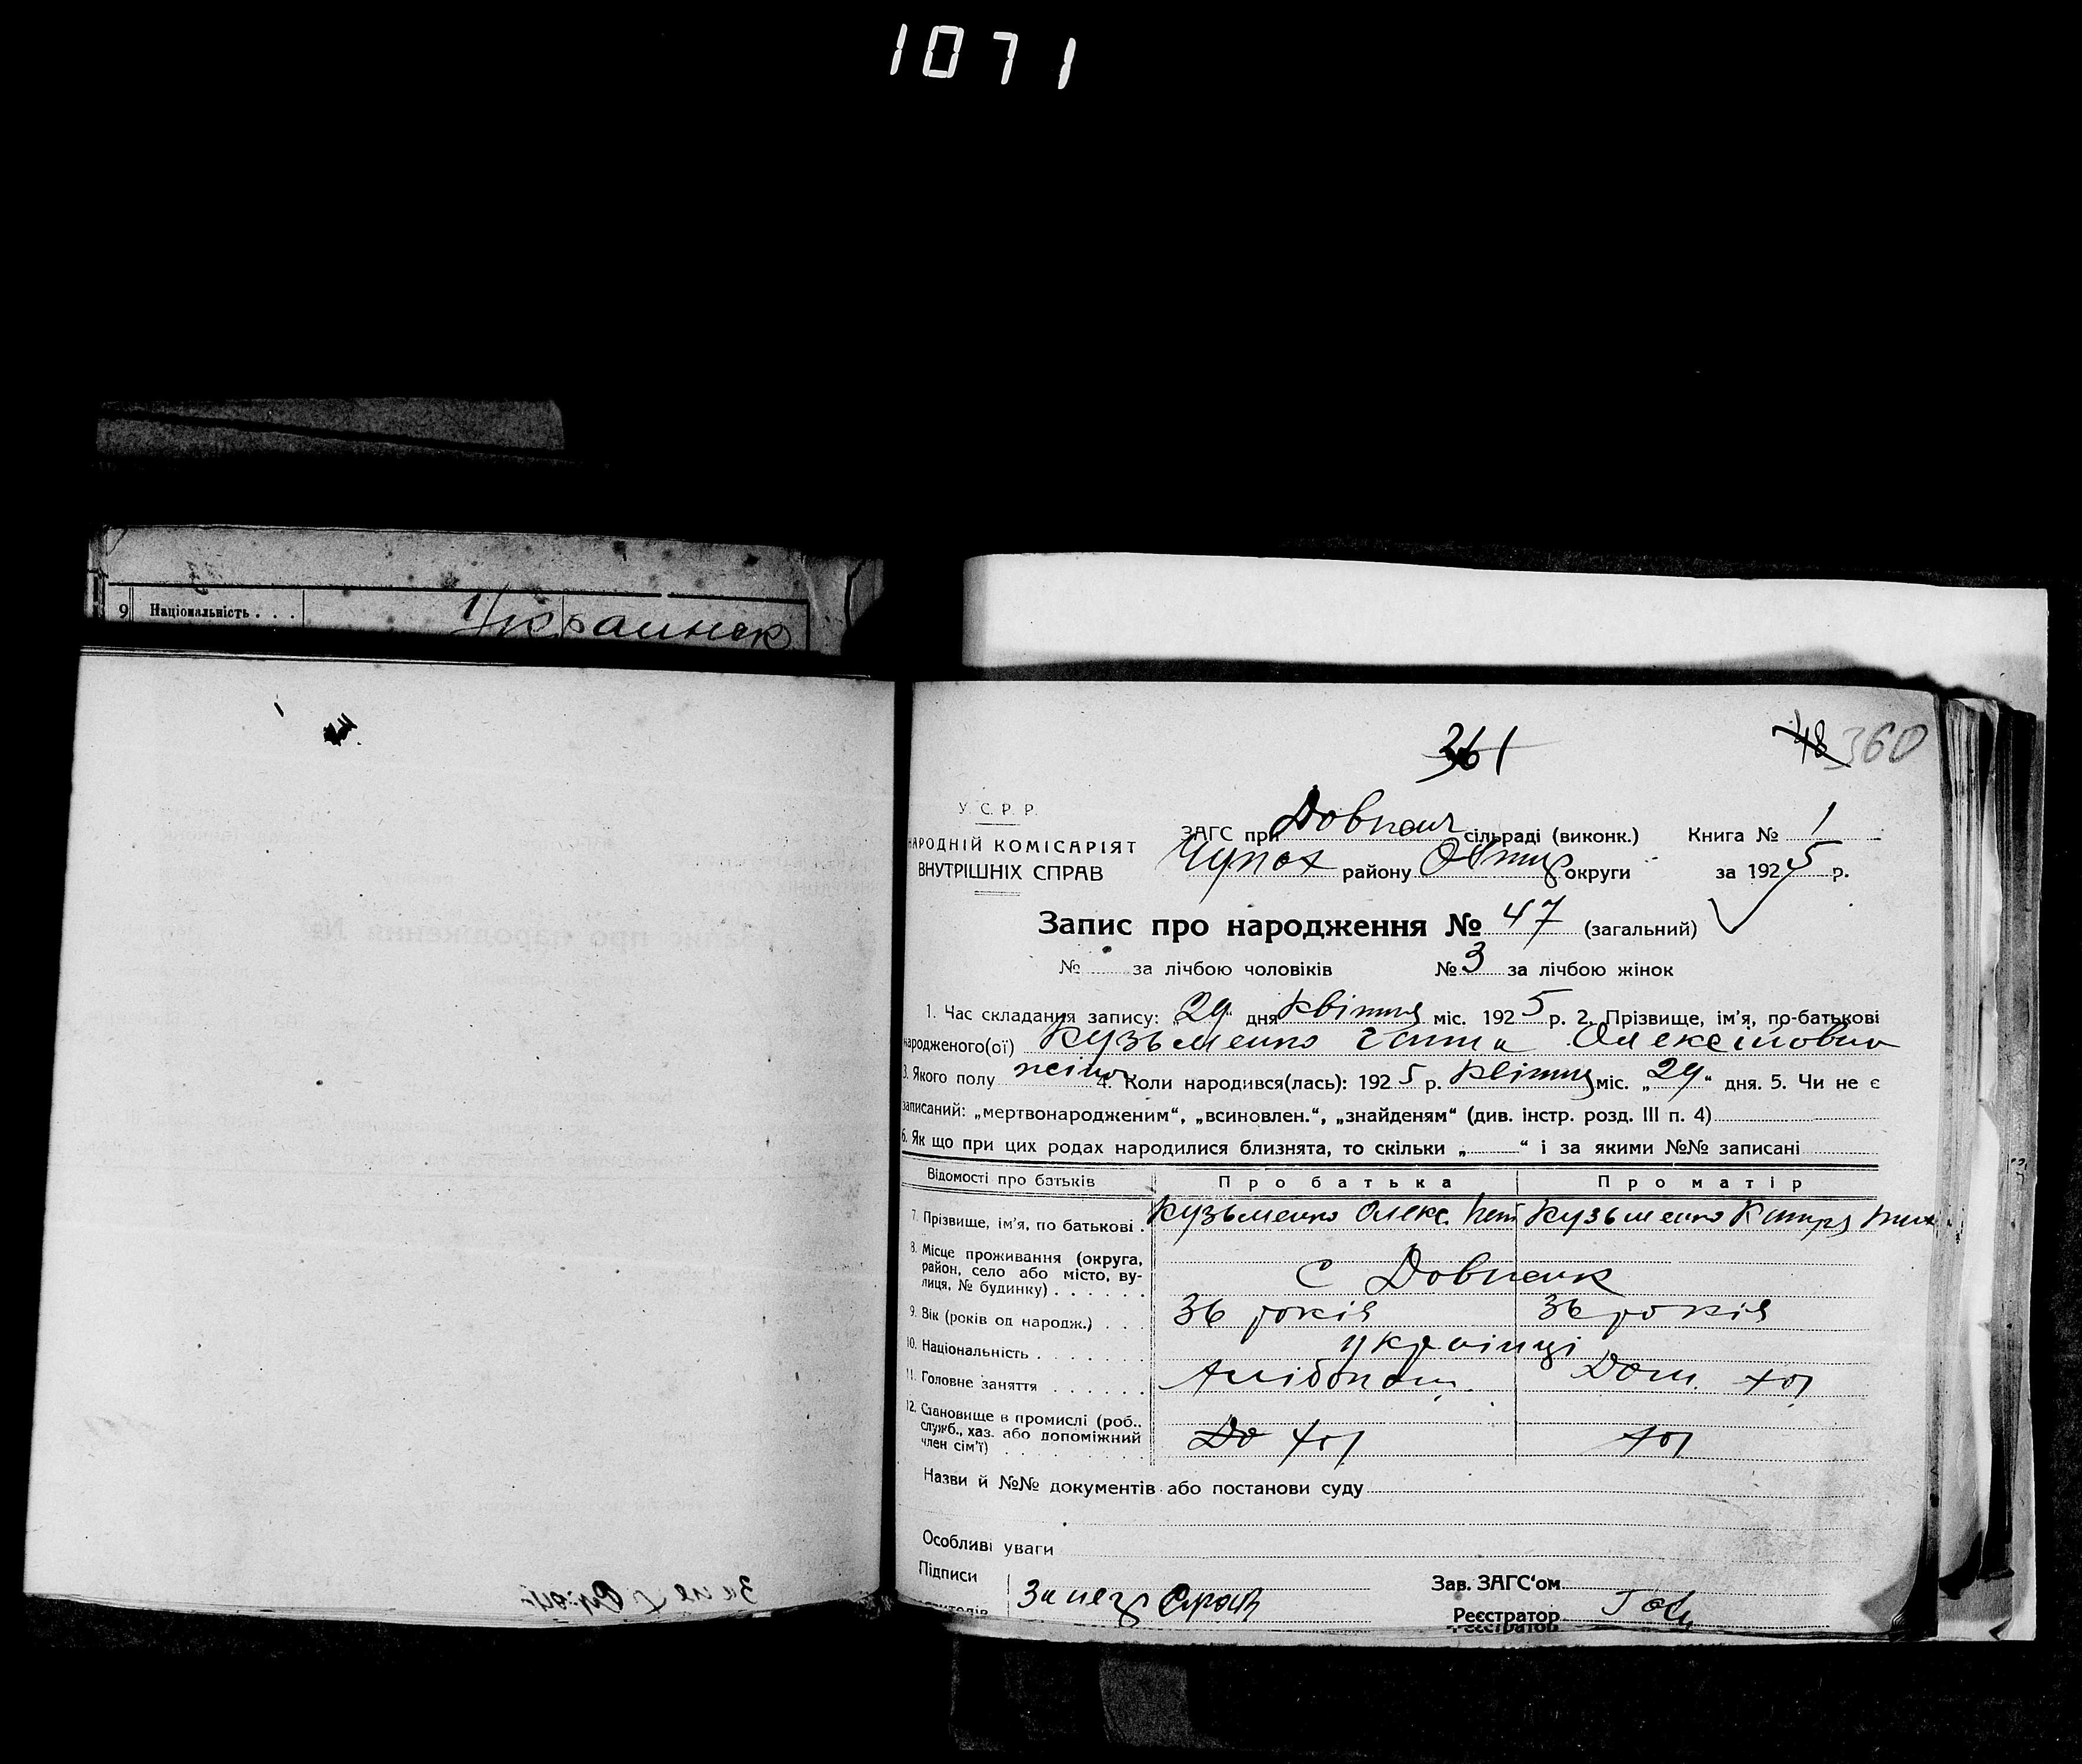 1071
9 Національність . . . Украинск
361
48 360
У. С. Р. Р.
НАРОДНІЙ КОМІСАРІЯТ
ВНУТРІШНІХ СПРАВ
ЗАГС при сільраді (виконк.) Книга № 1
Чупах району округи за 1925 р.
Запис про народження № 47 (загальний)
№ за лічбою чоловіків № 3 за лічбою жінок
1. Час складання запису: „29“ дня квітня міс. 1925 р. 2. Прізвище, ім'я, по-батькові
народженого(ої) Кузьменко Ганна Олексіїовна
3. Якого полу жіноч 4. Коли народився(лась): 1925 р. квітня міс. „29“ дня. 5. Чи не є
записаний: „мертвонародженим“, „всиновлен.“, „знайденям“ (див. інстр. розд. III п. 4)
6. Як що при цих родах народилися близнята, то скільки „ “ і за якими №№ записані
Відомості про батьків Про батька Про матір
7. Прізвище, ім'я, по батькові . Кузьменко Олекс. Кузьменко
8. Місце проживання (округа,
район, село або місто, ву-
лиця, № будинку) . . . . . . С Довжик
9. Вік (років од народж.) . . . 36 років 36 років
10. Національність . . . . . . . українці
11. Головне заняття . . . . . . Хлібопаш. Дом. хоз
12. Становище в промислі (роб.,
служб., хаз. або допоміжний
член сім'ї) . . . . . . . . До хоз хоз
Назви й №№ документів або постанови суду
Особливі уваги
Підписи Зав. ЗАГС'ом
За негр
Реєстратор
Реєстратор